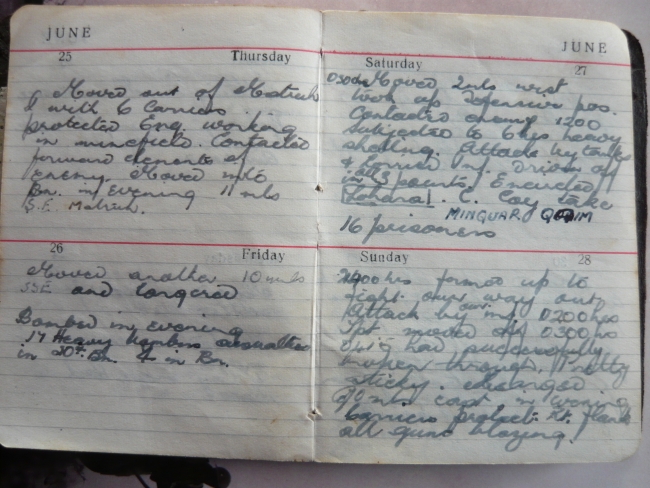 JUNE
25 Thursday
Moved out of Matruh
with 6 Carriers
protected Eng. working
in minefield. Contacted
forward elements of
enemy. Moved
Bn. in evening 11 mls
S.E. Matruh.
26 Friday
Moved another 10 mls
SSE and laagered
Bombed in evening
Heavy bombers casualties
in 20th Bn. 4 in Bn.
JUNE
Saturday 27
Moved 2mls west
took up defensive pos.
Contacted enemy 1200
Subjected to 6 hrs heavy
shelling. Attack by tanks
& lorried inf. Driven off
all 3 points. Encircled
C. Coy take
MINQUAR QAIM
16 prisoners
Sunday 28
2400 hrs formed up to
fight our way out
Attack by our inf 0200 hrs
Tpt moved off 0300 hrs
had successfully
broken through. Pretty
sticky.
mls east in evening
Carriers protect. Rt. flank
all guns blazing!